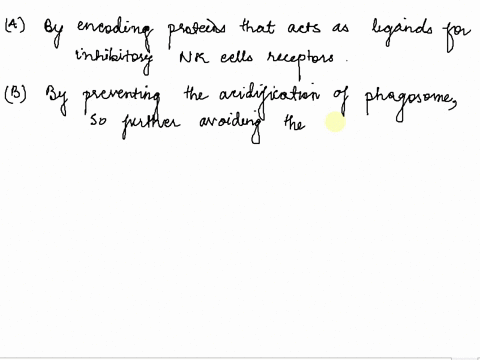 (A) By encoding proteins that acts as ligands for
inhibitory NK cells receptors.
(B) By preventing the acidification of phagosome,
so further avoiding the